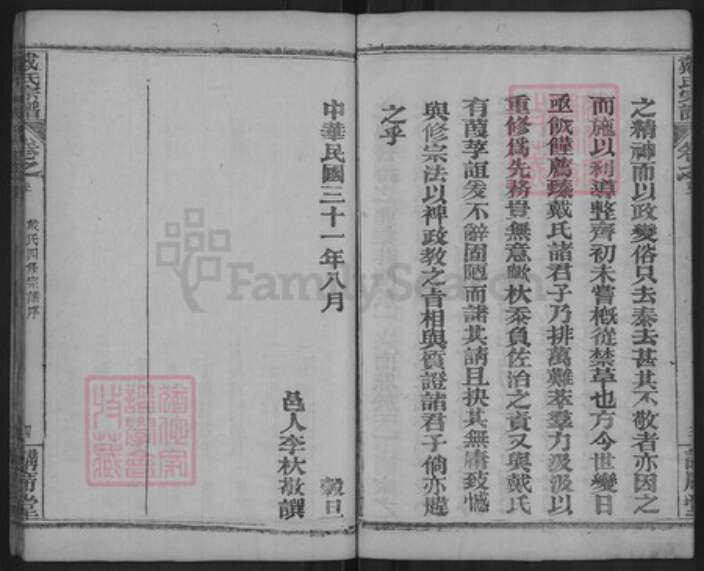 之精神而以政變俗只去泰去甚其不敬者亦因之
而施以利導整齊初未嘗概從禁革也方今世變日
亟饑饉薦臻戴氏諸君子乃排萬難萃羣力汲汲以
重修爲先務豈無意歟杕忝負佐治之責又與戴氏
有葭莩誼爰不辭固陋而諾其請且抉其無庸致憾
與修宗法以裨政教之旨相與質證諸君子倘亦韙
之乎
中華民國三十一年八月 穀旦
邑人李杕敬譔
戴氏宗譜
卷之
戴氏四修宗譜序
四
戴氏宗譜
卷之
FamilySearch